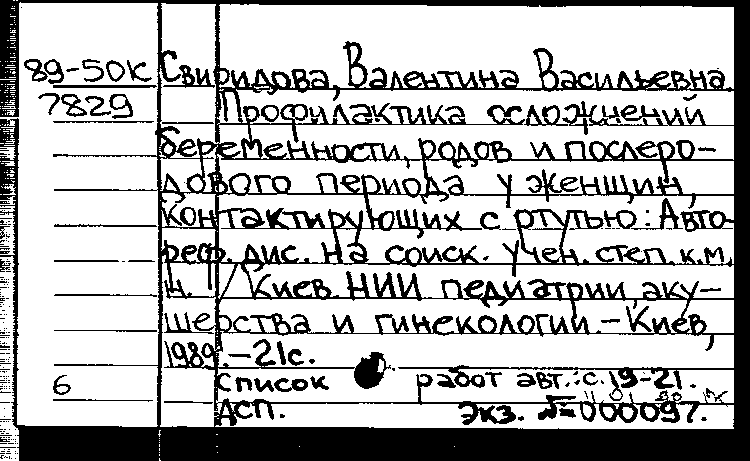 89-50К Свиридова, Валентина Васильевна.
7829 Профилактика осложнений
беременности, родов и послеро-
дового периода у женщин,
контактирующих с ртутью: Авто-
реф. дис. на соиск. учен. степ. к.м.
н. / Киев. НИИ педиатрии, аку-
шерства и гинекологии. – Киев,
1989. – 21с.
6 Список работ авт.: с. 19-21.
ДСП. Экз. № 000097.